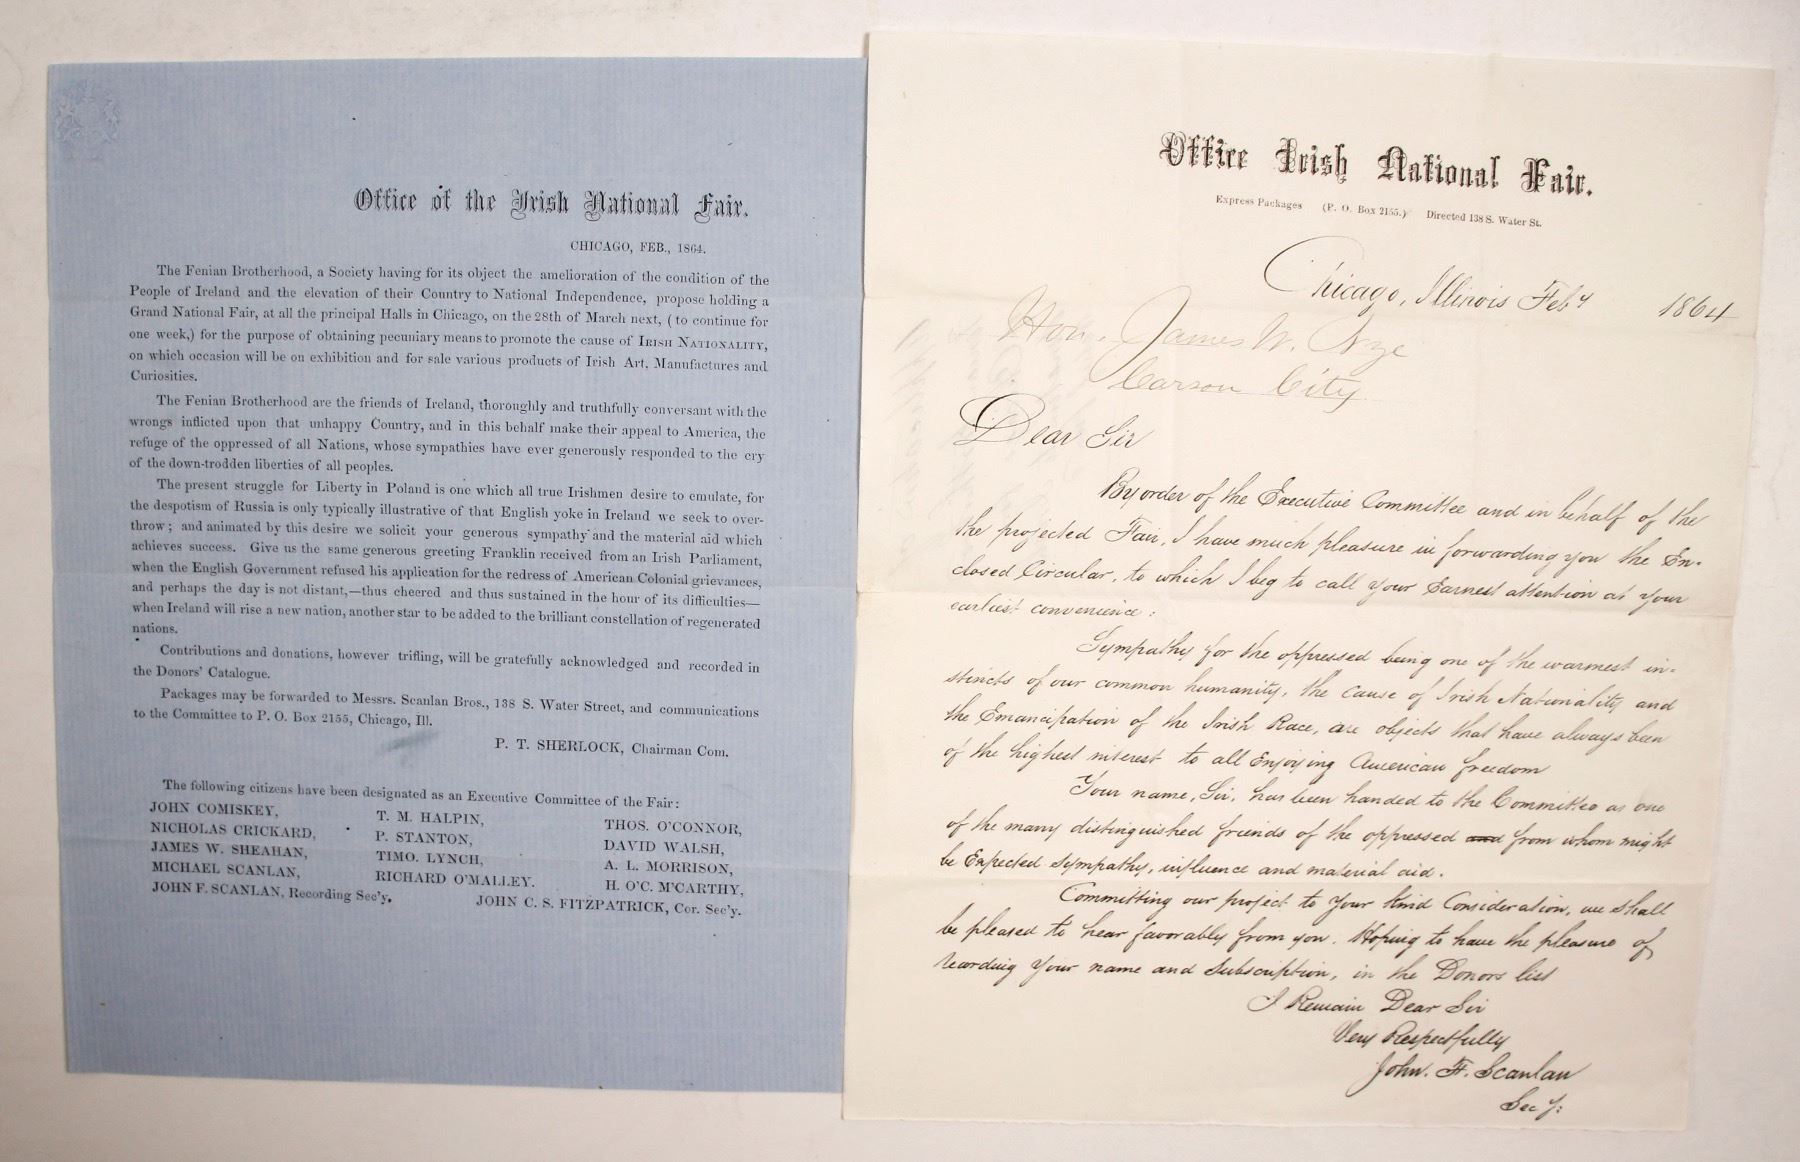 Office of the Irish National Fair.
CHICAGO, FEB., 1864.
The Fenian Brotherhood, a Society having for its object the amelioration of the condition of the
People of Ireland and the elevation of their Country to National Independence, propose holding a
Grand National Fair, at all the principal Halls in Chicago, on the 28th of March next, (to continue for
one week,) for the purpose of obtaining pecuniary means to promote the cause of IRISH NATIONALITY,
on which occasion will be on exhibition and for sale various products of Irish Art, Manufactures and
Curiosities.
The Fenian Brotherhood are the friends of Ireland, thoroughly and truthfully conversant with the
wrongs inflicted upon that unhappy Country, and in this behalf make their appeal to America, the
refuge of the oppressed of all Nations, whose sympathies have ever generously responded to the cry
of the down-trodden liberties of all peoples.
The present struggle for Liberty in Poland is one which all true Irishmen desire to emulate, for
the despotism of Russia is only typically illustrative of that English yoke in Ireland we seek to over-
throw; and animated by this desire we solicit your generous sympathy and the material aid which
achieves success. Give us the same generous greeting Franklin received from an Irish Parliament,
when the English Government refused his application for the redress of American Colonial grievances,
and perhaps the day is not distant,—thus cheered and thus sustained in the hour of its difficulties—
when Ireland will rise a new nation, another star to be added to the brilliant constellation of regenerated
nations.
Contributions and donations, however trifling, will be gratefully acknowledged and recorded in
the Donors' Catalogue.
Packages may be forwarded to Messrs. Scanlan Bros., 138 S. Water Street, and communications
to the Committee to P. O. Box 2155, Chicago, Ill.
P. T. SHERLOCK, Chairman Com.
The following citizens have been designated as an Executive Committee of the Fair:
JOHN COMISKEY, T. M. HALPIN, THOS. O'CONNOR,
NICHOLAS CRICKARD, P. STANTON, DAVID WALSH,
JAMES W. SHEAHAN, TIMO. LYNCH, A. L. MORRISON,
MICHAEL SCANLAN, RICHARD O'MALLEY. H. O'C. M'CARTHY,
JOHN F. SCANLAN, Recording Sec'y. JOHN C. S. FITZPATRICK, Cor. Sec'y.
Office Irish National Fair.
Express Packages (P. O. Box 2155.) Directed 138 S. Water St.
Chicago, Illinois Feby 1864
Hon. James W. Nye
Carson City
Dear Sir
By order of the Executive Committee and in behalf of the
the projected Fair, I have much pleasure in forwarding you the En-
closed Circular, to which I beg to call your Earnest attention at your
earliest convenience:
Sympathy for the oppressed being one of the warmest in-
stincts of our common humanity, the cause of Irish Nationality and
the Emancipation of the Irish Race, are objects that have always been
of the highest interest to all Enjoying American freedom
Your name, Sir, has been handed to the Committee as one
of the many distinguished friends of the oppressed and from whom might
be Expected sympathy, influence and material aid.
Committing our project to your kind Consideration, we shall
be pleased to hear favorably from you. Hoping to have the pleasure of
recording your name and Subscription, in the Donors list
I Remain Dear Sir
Very Respectfully
John. F. Scanlan
Secy: